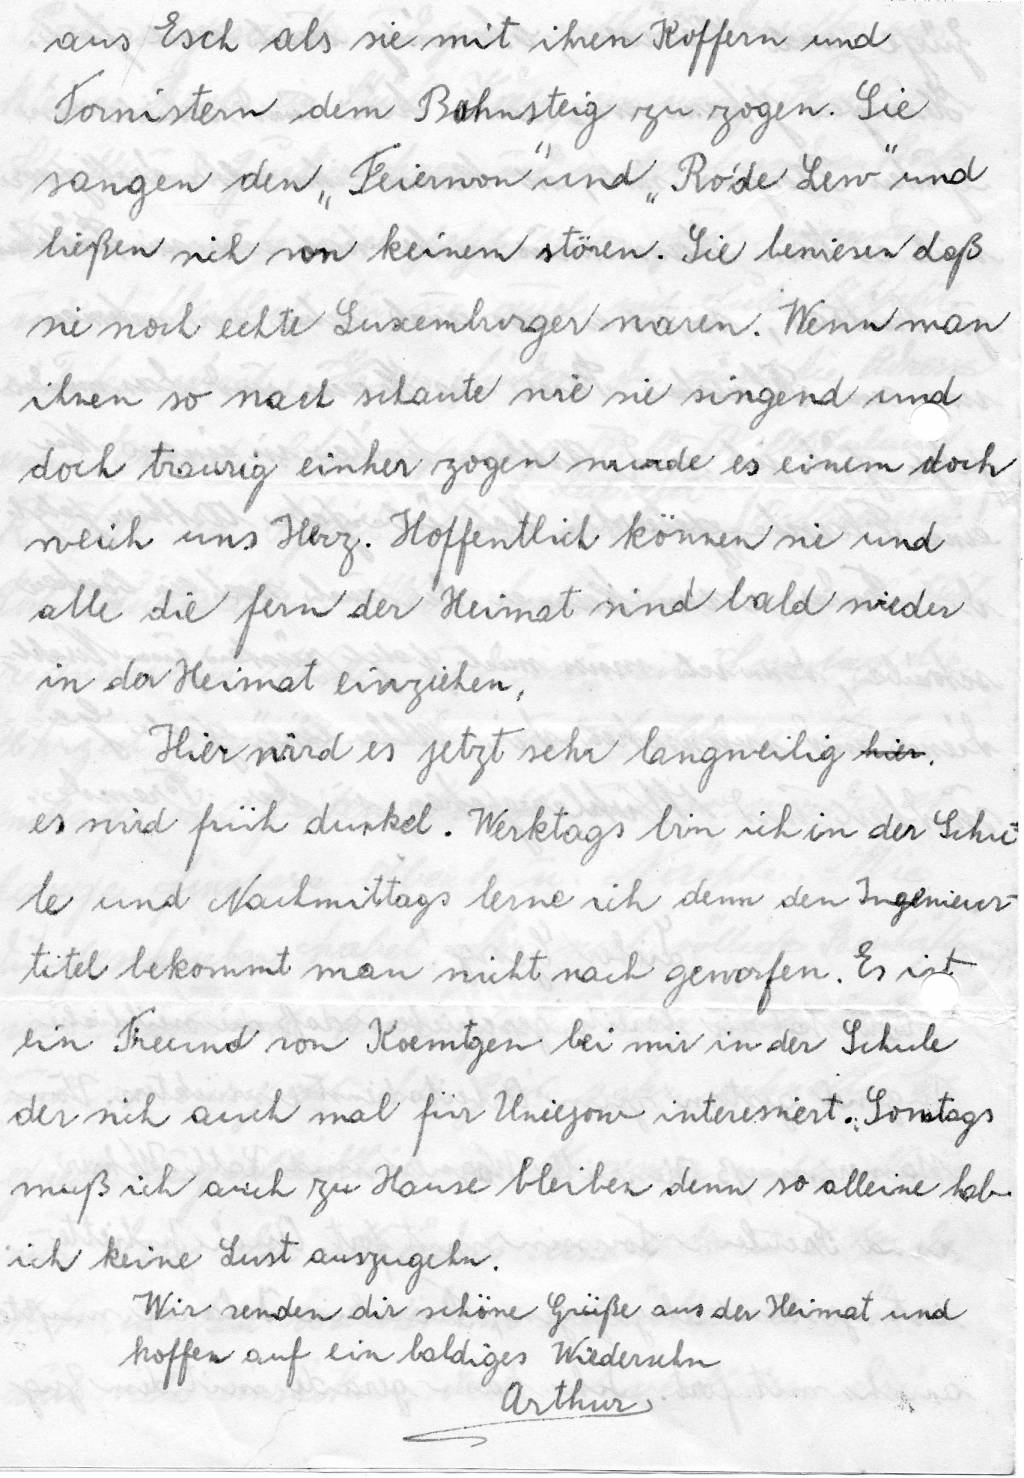 aus Esch als sie mit ihren Koffern und
Tornistern dem Bahnsteig zu zogen. Sie
sangen den „Feierwon" und „Ro'de Lew" und
ließen sich von keinem stören. Sie bewiesen daß
sie noch echte Luxemburger waren. Wenn man
ihnen so nach schaute wie sie singend und
doch traurig einher zogen wurde es einem doch
weich ums Herz. Hoffentlich können sie und
alle die fern der Heimat sind bald wieder
in der Heimat einziehen,
Hier wird es jetzt sehr langweilig hier.
es wird früh dunkel. Werktags bin ich in der Schu-
le und Nachmittags lerne ich denn den Ingenieur-
titel bekommt man nicht nach geworfen. Es ist
ein Freund von Koemtgen bei mir in der Schule
der sich auch mal für Uniejow interessiert. Sonntags
muß ich auch zu Hause bleiben denn so alleine hab
ich keine Lust auszugehn.
Wir senden dir schöne Grüße aus der Heimat und
hoffen auf ein baldiges Wiedersehn
Arthur